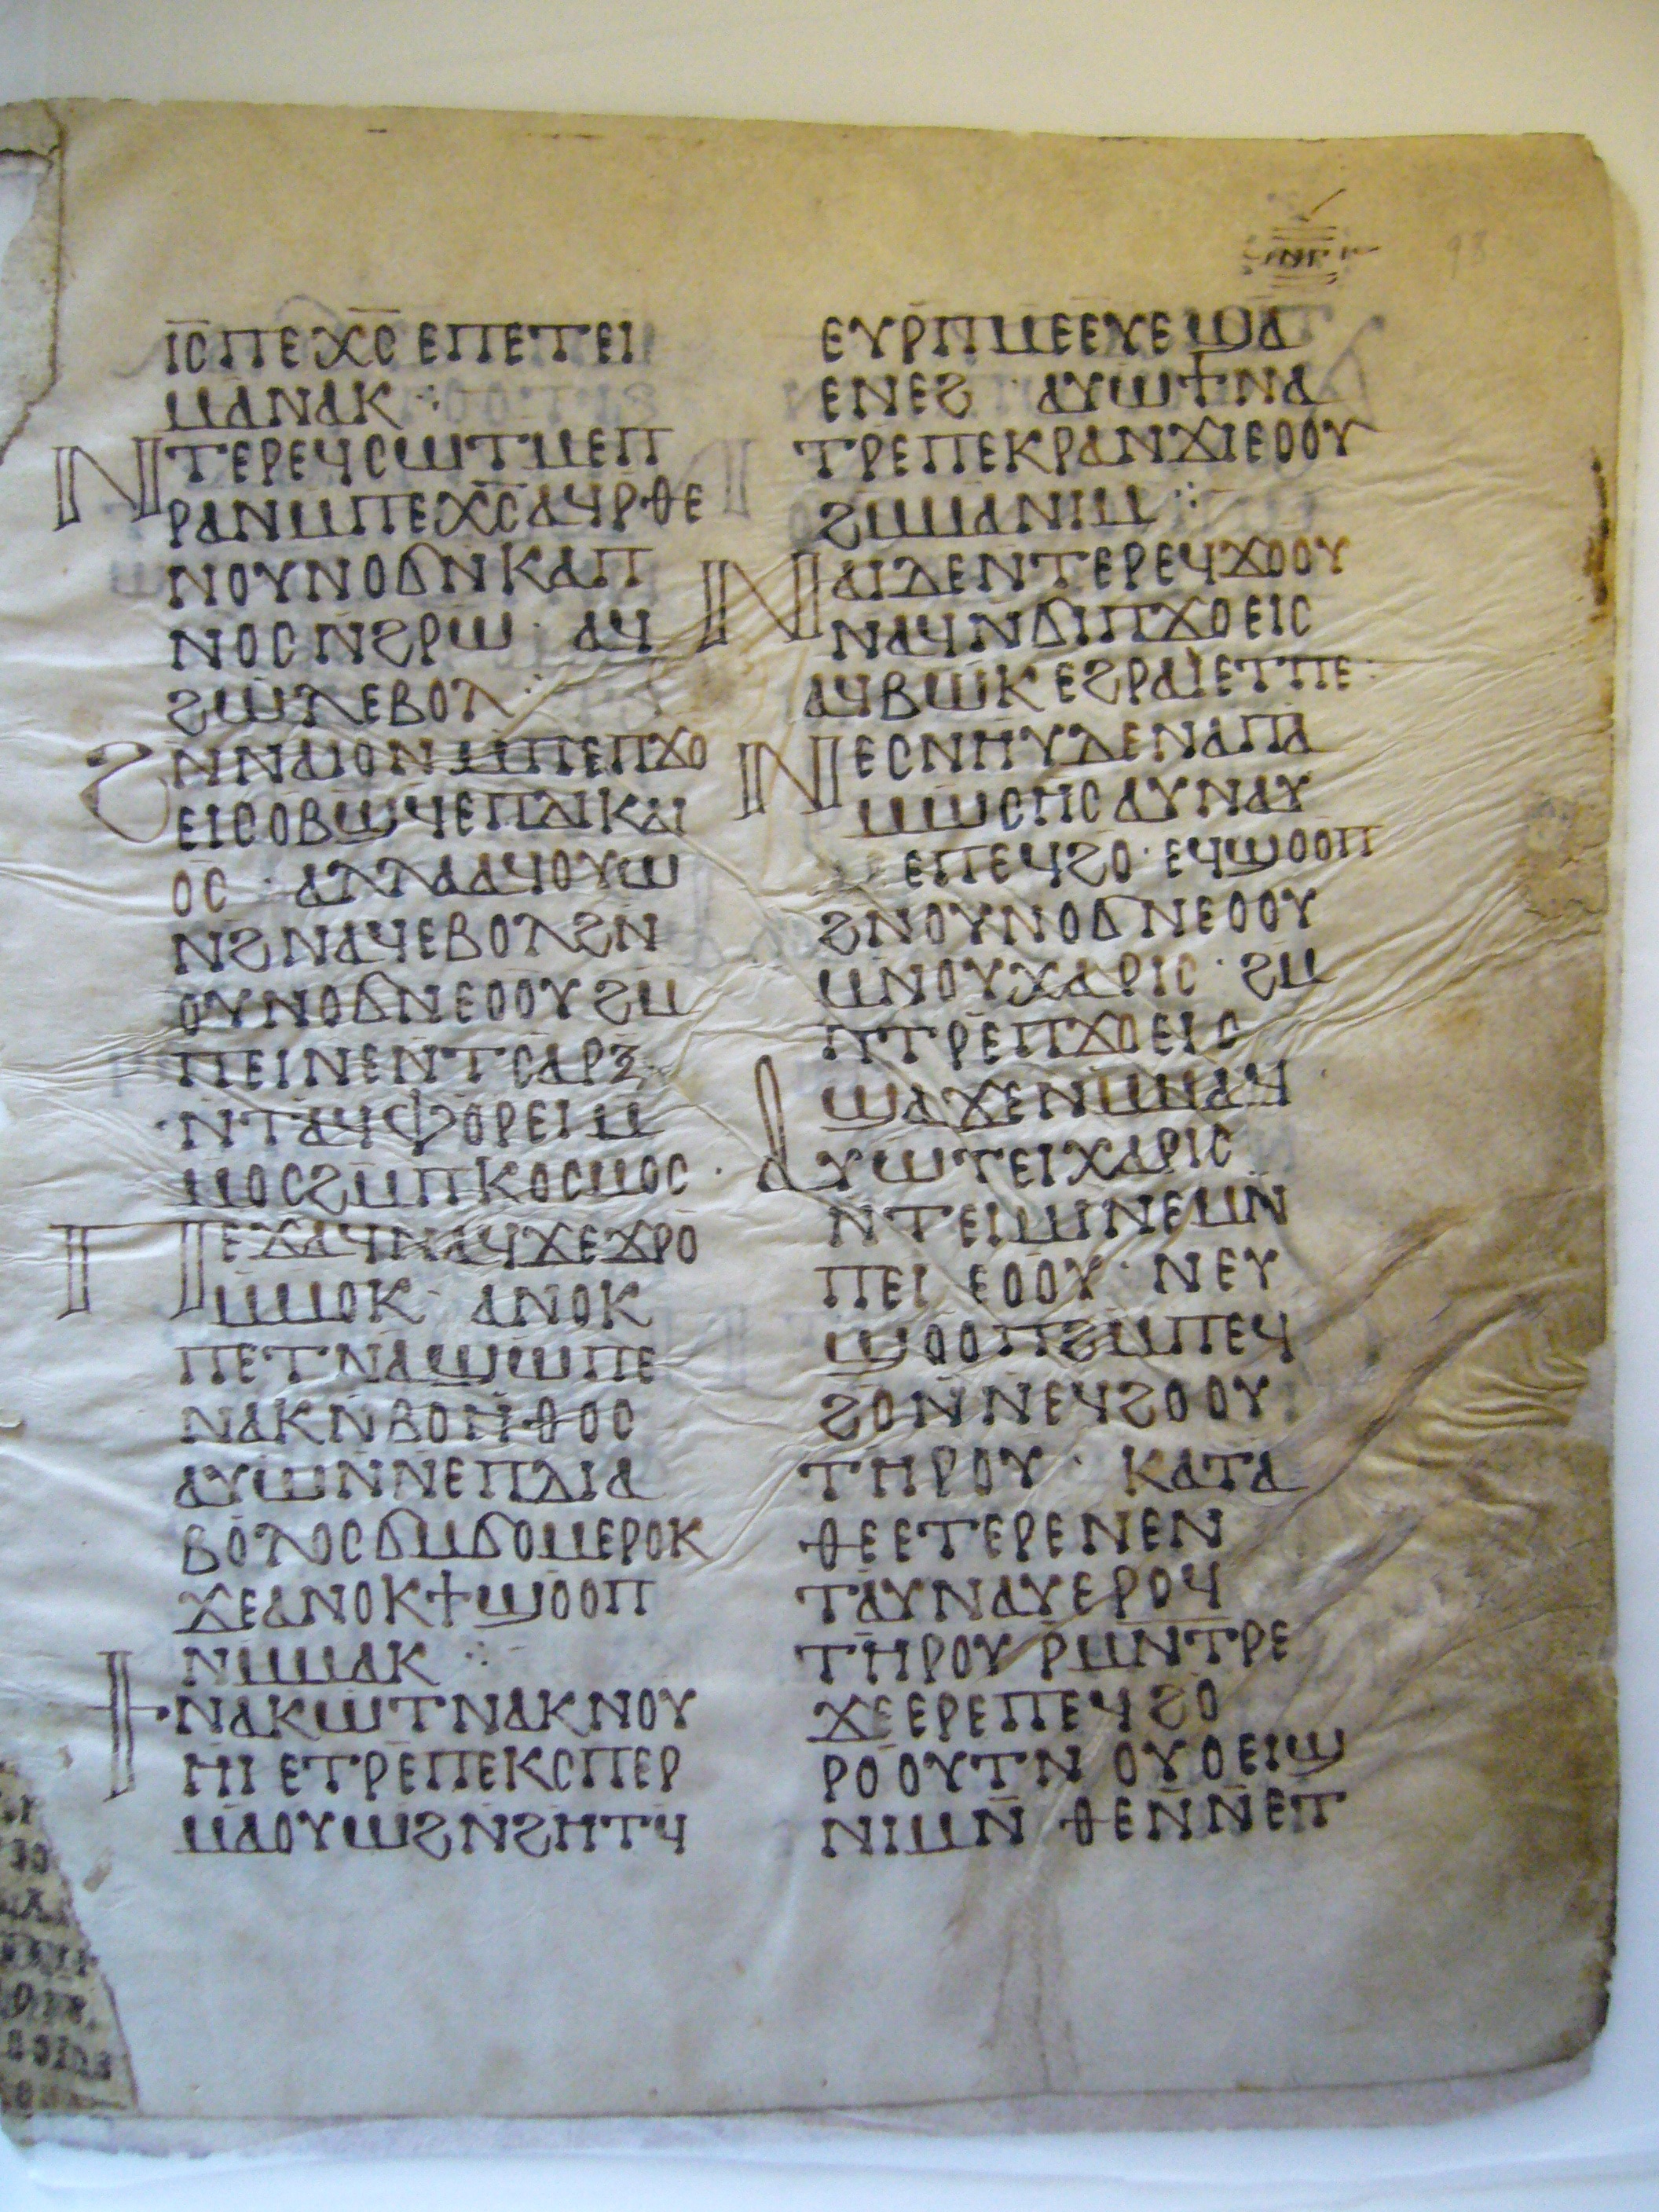 ⲓ̅ⲥ̅ⲡⲉⲭ̅ⲥ̅ⲉⲡⲉⲧⲉⲓ
ⲙⲁⲛⲁⲕ ⁘
Ⲛⲧⲉⲣⲉϥⲥⲱⲧⲙⲉⲡ
ⲣⲁⲛⲙⲡⲉⲭ̅ⲥ̅ⲁϥⲣⲑⲉ
ⲛⲟⲩⲛⲟϭⲛⲕⲁⲡ
ⲛⲟⲥⲛϩⲣⲱ · ⲁϥ
ϩⲱⲗⲉⲃⲟⲗ ⁘
Ϩⲛⲛⲁⲓⲟⲛⲙⲡⲉⲡϫⲟ
ⲉⲓⲥⲟⲃϣϥⲉⲡⲇⲓⲕⲁⲓ
ⲟⲥ · ⲁⲗⲗⲁⲁϥⲟⲩⲱ
ⲛϩⲛⲁϥⲉⲃⲟⲗϩⲛ
ⲟⲩⲛⲟϭⲛⲉⲟⲟⲩϩⲙ
ⲡⲉⲓⲛⲉⲛⲧⲥⲁⲣⲝ
ⲛⲧⲁϥⲫⲟⲣⲉⲓⲙ
ⲙⲟⲥϩⲙⲡⲕⲟⲥⲙⲟⲥ ·
Ⲡⲉϫⲁϥⲛⲁϥϫⲉϫⲣⲟ
ⲙⲙⲟⲕ · ⲁⲛⲟⲕ
ⲡⲉⲧⲛⲁϣⲱⲡⲉ
ⲛⲁⲕⲛⲃⲟⲏⲑⲟⲥ
ⲁⲩⲱⲛⲛⲉⲡⲇⲓⲁ
ⲃⲟⲗⲟⲥϭⲙϭⲟⲙⲉⲣⲟⲕ
ϫⲉⲁⲛⲟⲕϯϣⲟⲟⲡ
ⲛⲙⲙⲁⲕ ⁘
Ϯⲛⲁⲕⲱⲧⲛⲁⲕⲛⲟⲩ
ⲏⲓ ⲉⲧⲣⲉⲡⲉⲕⲥⲡⲉⲣ
ⲙⲁⲟⲩⲱϩⲛϩⲏⲧϥ
ⲉⲩⲣⲡⲙⲉⲉⲩⲉϣⲁ
ⲉⲛⲉϩ · ⲁⲩⲱϯⲛⲁ
ⲧⲣⲉⲡⲉⲕⲣⲁⲛϫⲓⲉⲟⲟⲩ
ϩⲙⲙⲁⲛⲓⲙ ⁘
Ⲛⲁⲓⲇⲉⲛⲧⲉⲣⲉϥϫⲟⲟⲩ
ⲛⲁϥⲛϭⲓⲡϫⲟⲉⲓⲥ
ⲁϥⲃⲱⲕⲉϩⲣⲁⲓⲉⲧⲡⲉ ·
Ⲛⲉⲥⲛⲏⲩⲇⲉⲛⲁⲡⲁ
ⲙⲱⲥⲏⲥⲁⲩⲛⲁⲩ
ⲉⲡⲉϥϩⲟ · ⲉϥϣⲟⲟⲡ
ϩⲛⲟⲩⲛⲟϭⲛⲉⲟⲟⲩ
ⲙⲛⲟⲩⲭⲁⲣⲓⲥ · ϩⲙ
ⲡⲧⲣⲉⲡϫⲟⲉⲓⲥ
ϣⲁϫⲉⲛⲙⲙⲁϥ
Ⲁⲩⲱⲧⲉⲓⲭⲁⲣⲓⲥ
ⲛⲧⲉⲓⲙⲓⲛⲉⲙⲛ
ⲡⲉⲓ ⲉⲟⲟⲩ · ⲛⲉⲩ
ϣⲟⲟⲡϩⲙⲡⲉϥ
ϩⲟⲛⲛⲉϥϩⲟⲟⲩ
ⲧⲏⲣⲟⲩ · ⲕⲁⲧⲁ
ⲑⲉⲉⲧⲉⲣⲉⲛⲉⲛ
ⲧⲁⲩⲛⲁⲩⲉⲣⲟϥ
ⲧⲏⲣⲟⲩ ⲣⲙⲛⲧⲣⲉ
ϫⲉⲉⲣⲉⲡⲉϥϩⲟ
ⲣⲟⲟⲩⲧⲛ ⲟⲩⲟⲉⲓϣ
ⲛⲓⲙⲛ ⲑⲉⲛⲛⲉⲧ